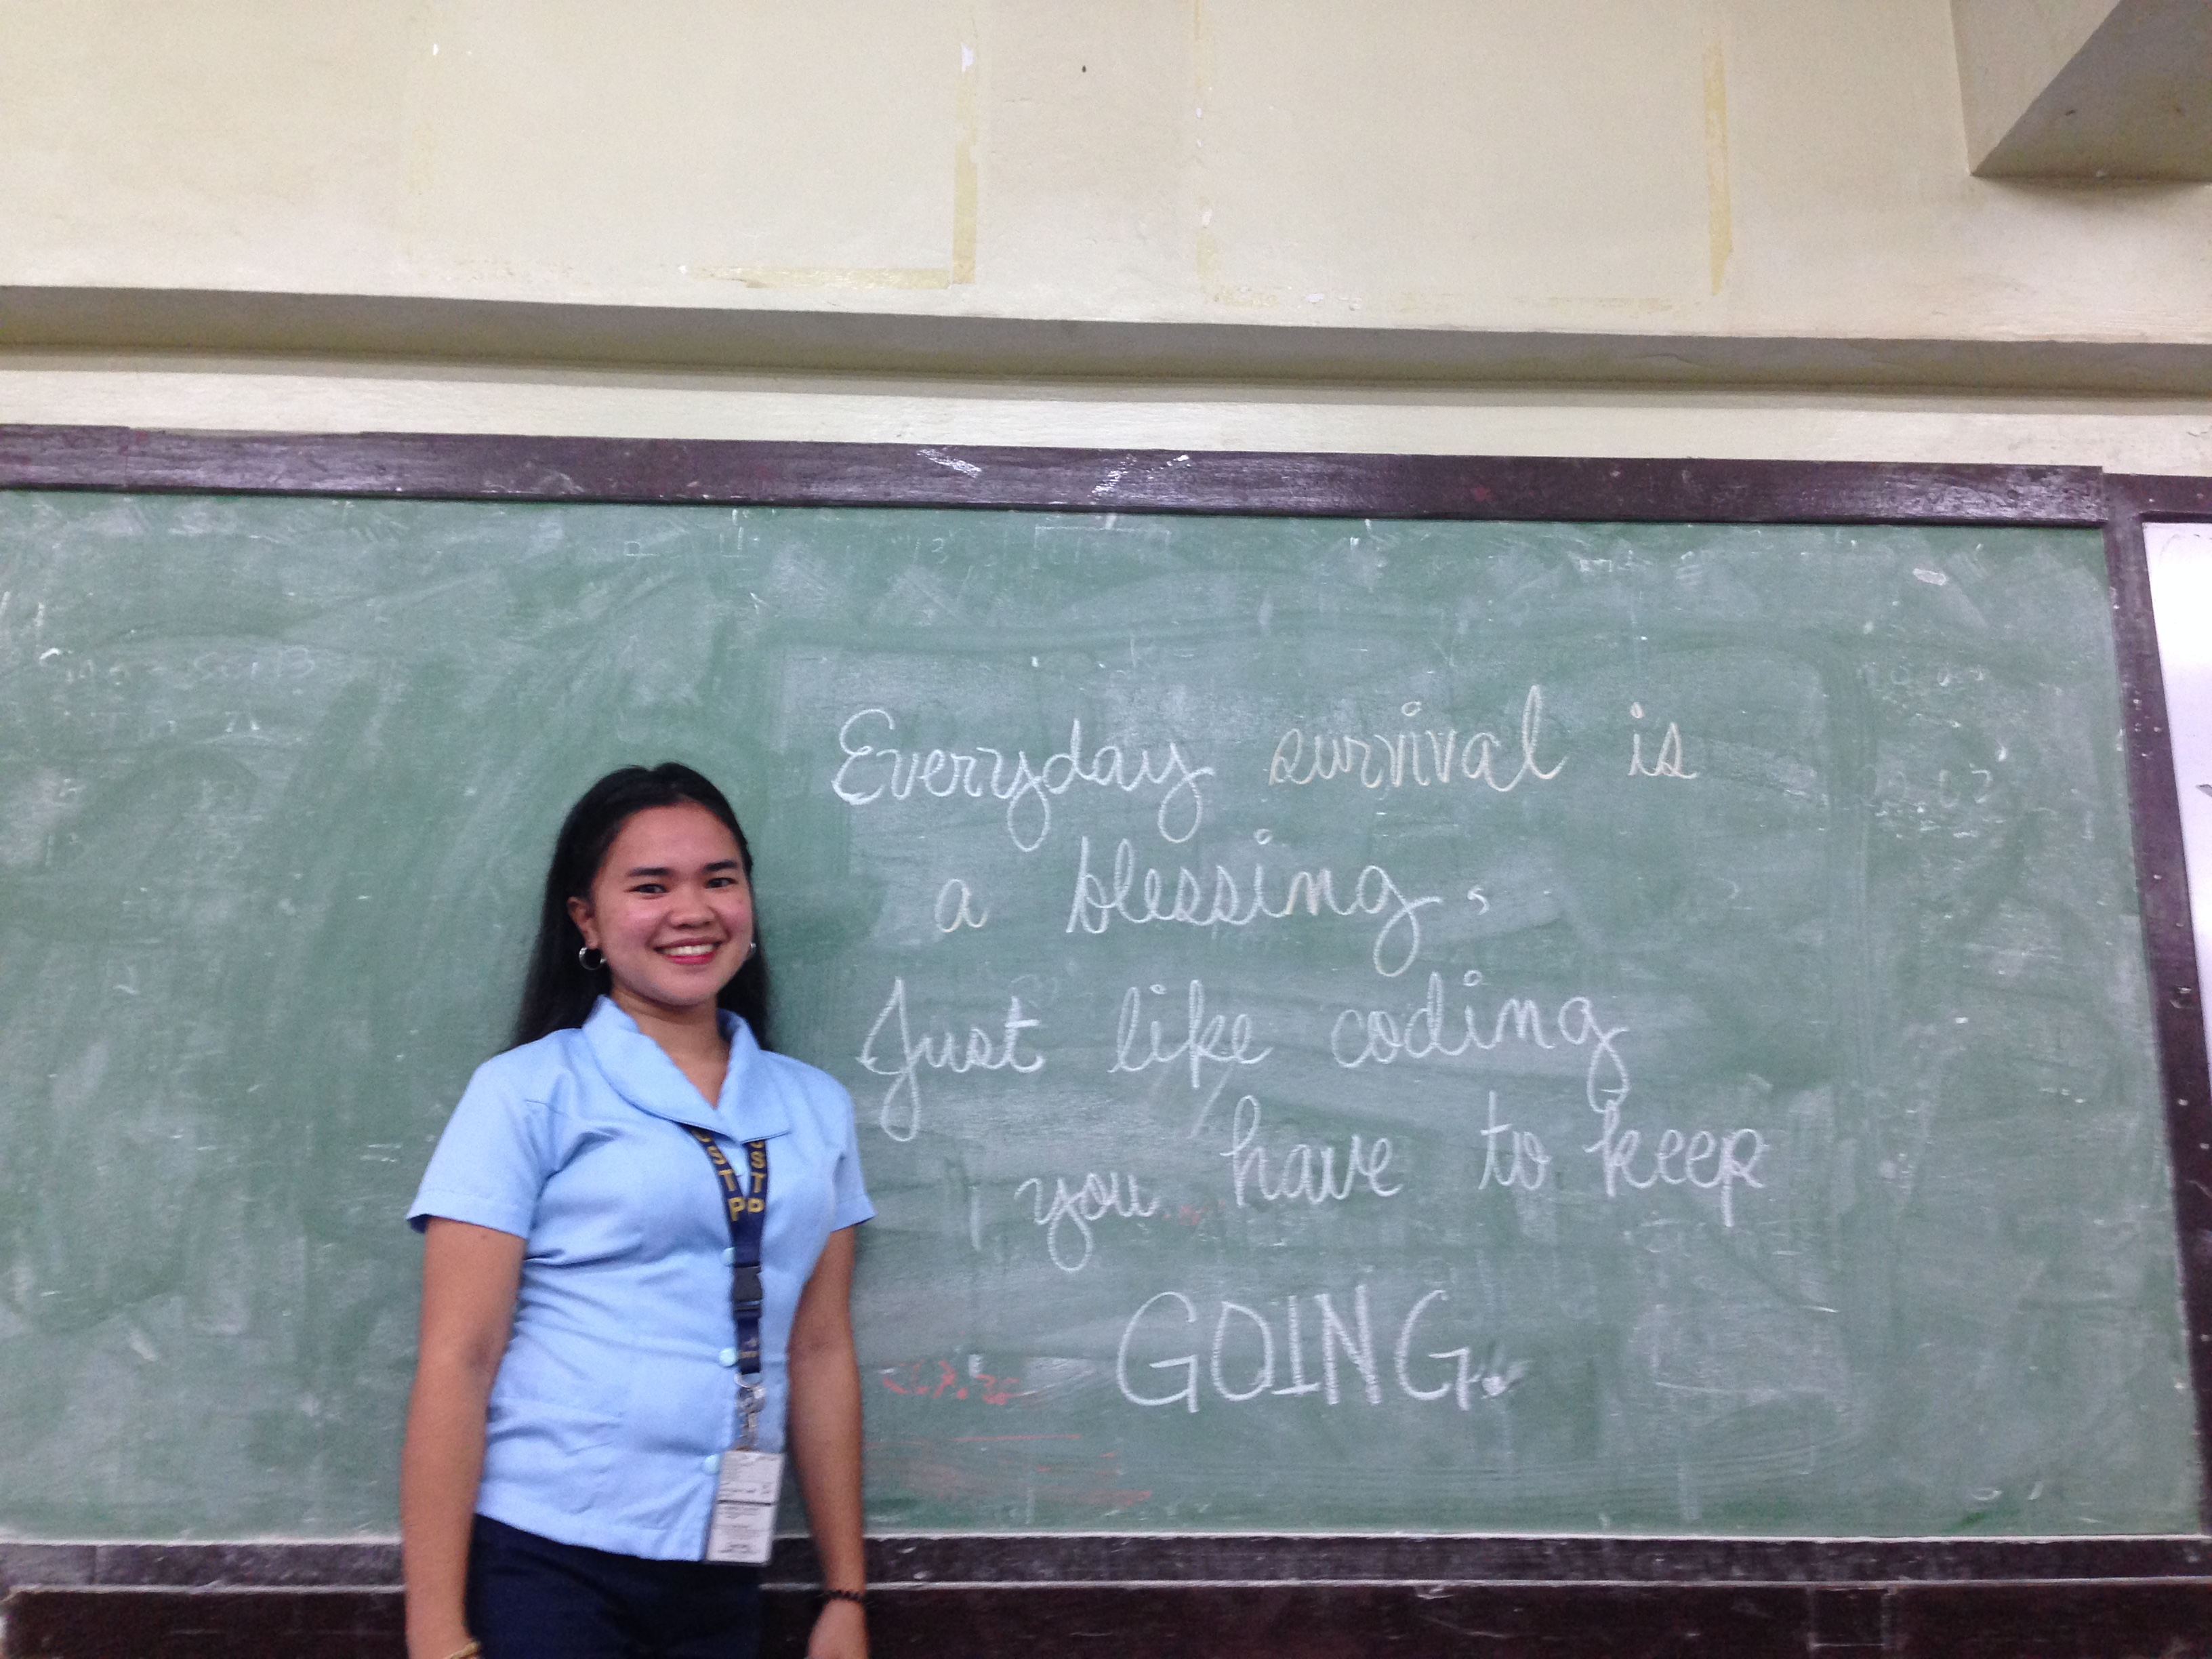 Everyday survival is
a blessing.
Just like coding
you have to keep
GOING.
USTP
USTP